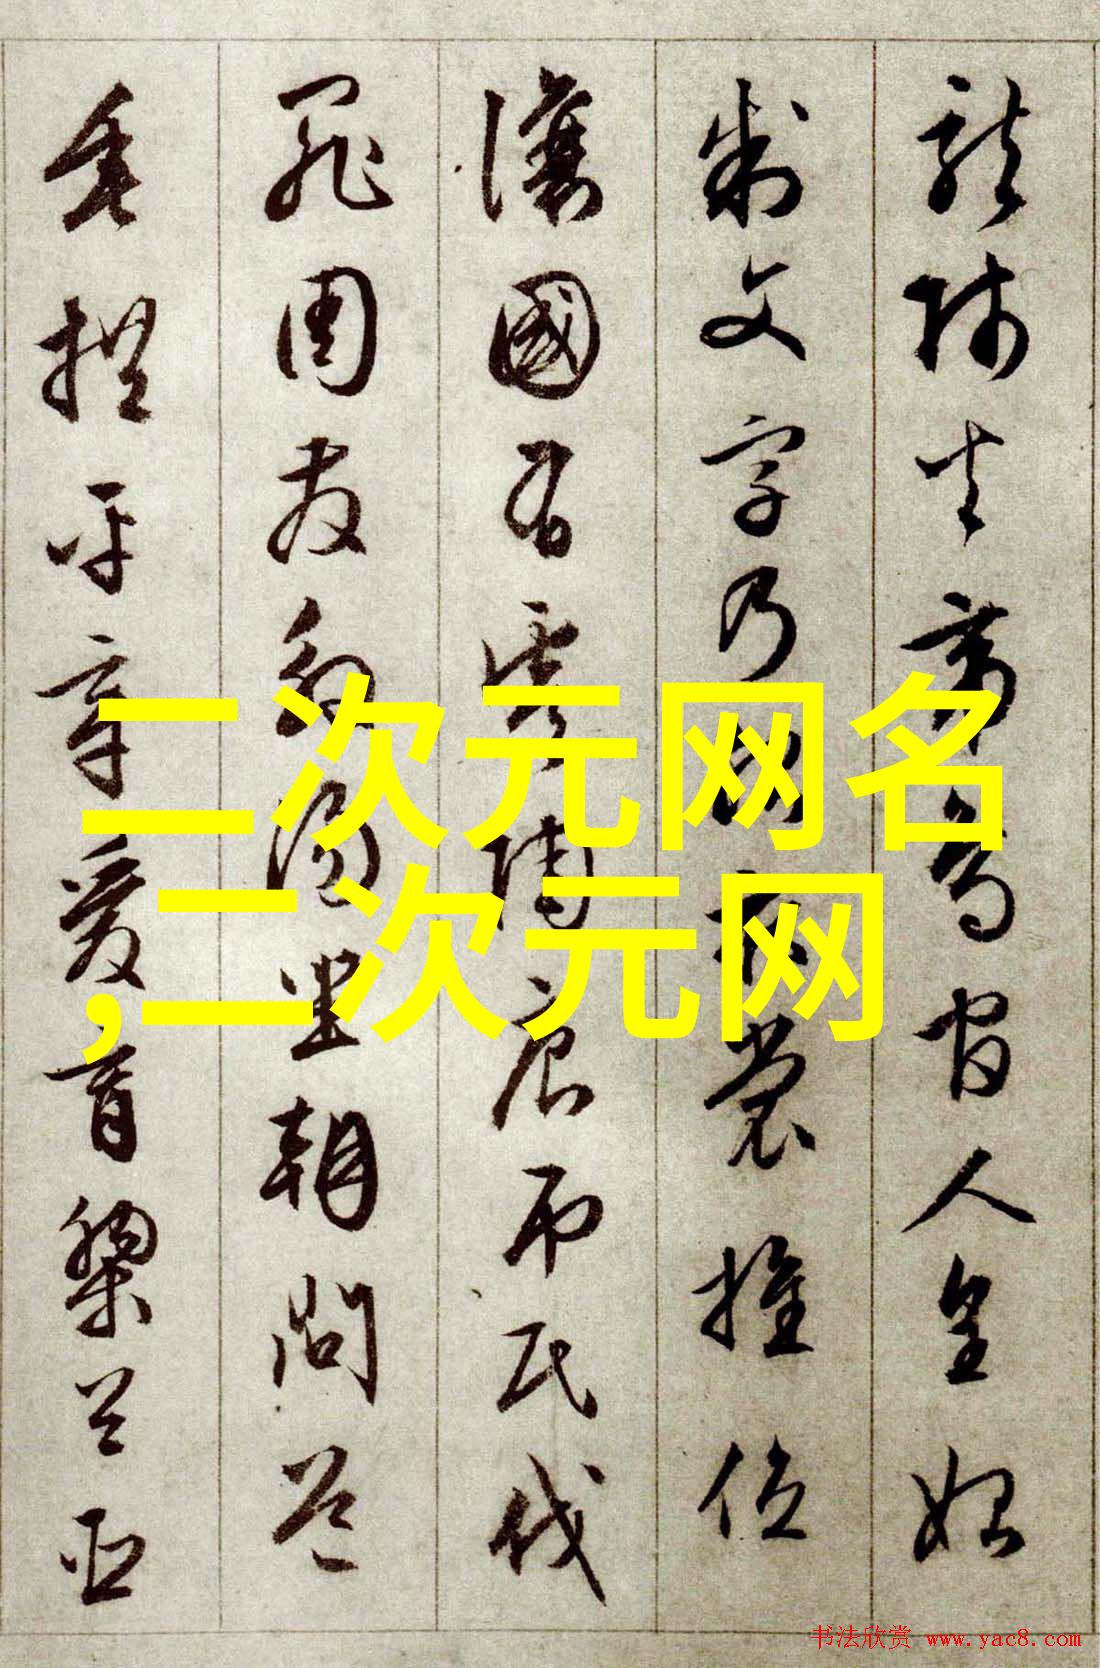 龍師火帝鳥官人皇始
制文字乃服衣裳推位
讓國有虞陶唐弔民伐
罪周發殷湯坐朝問道
垂拱平章愛育黎首臣
二次元网名
,二次元网
书法欣赏 www.yac8.com